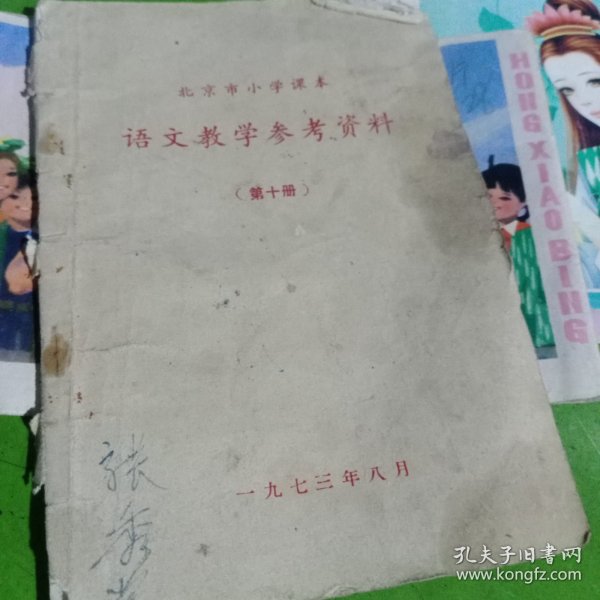 北京市小学课本
语文教学参考资料
（第十册）
一九七三年八月
张
秀
HONG XIAO BING
孔夫子旧书网
www.kongfz.com